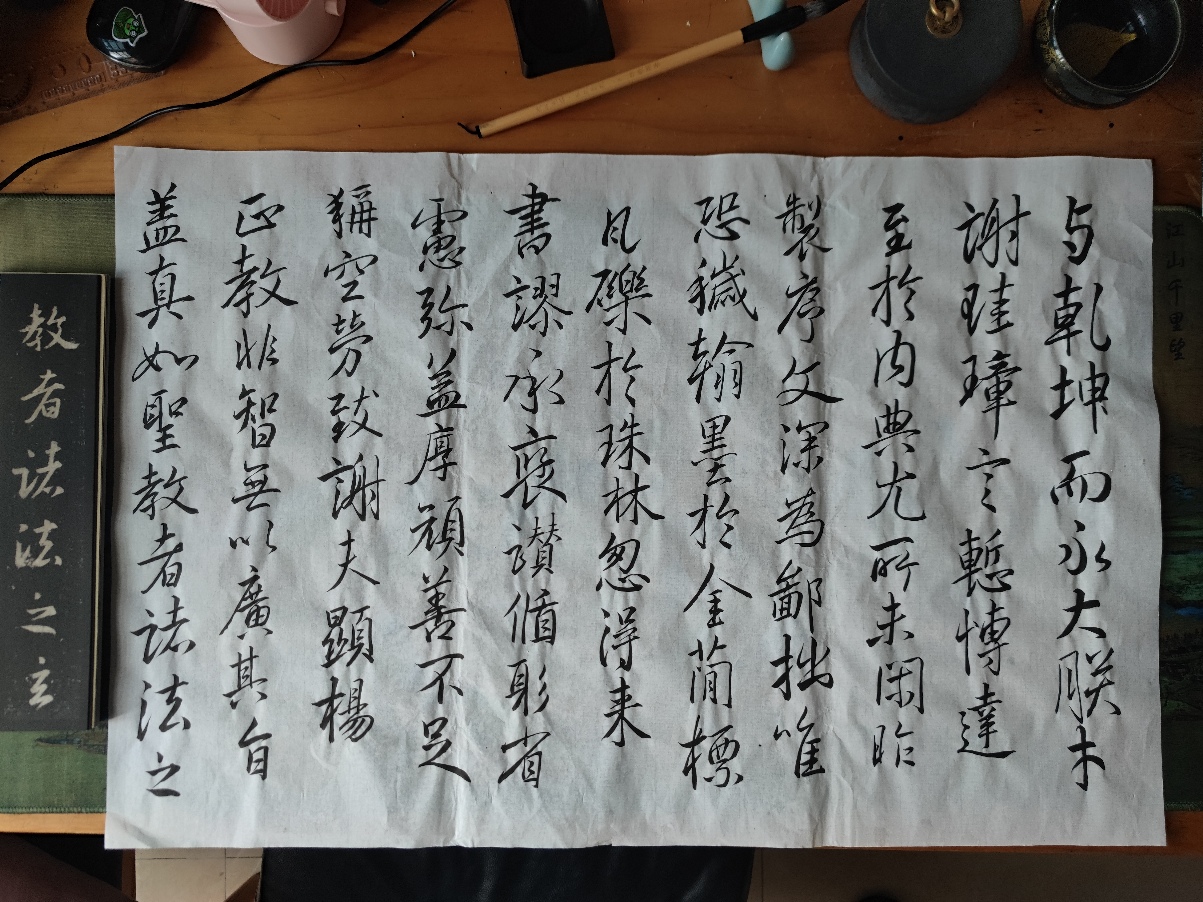 江山千里望
与乾坤而永大朕才
謝珪璋言慙博達
至於内典尤所未閑昨
製序文深為鄙拙唯
恐穢翰墨於金簡標
凡礫於珠林忽得来
書謬承褒讃循躬省
慮弥盖厚顔善不足
稱空勞致謝夫顯揚
正教非智無以廣其旨
盖真如聖教者諸法之
教者諸法之玄